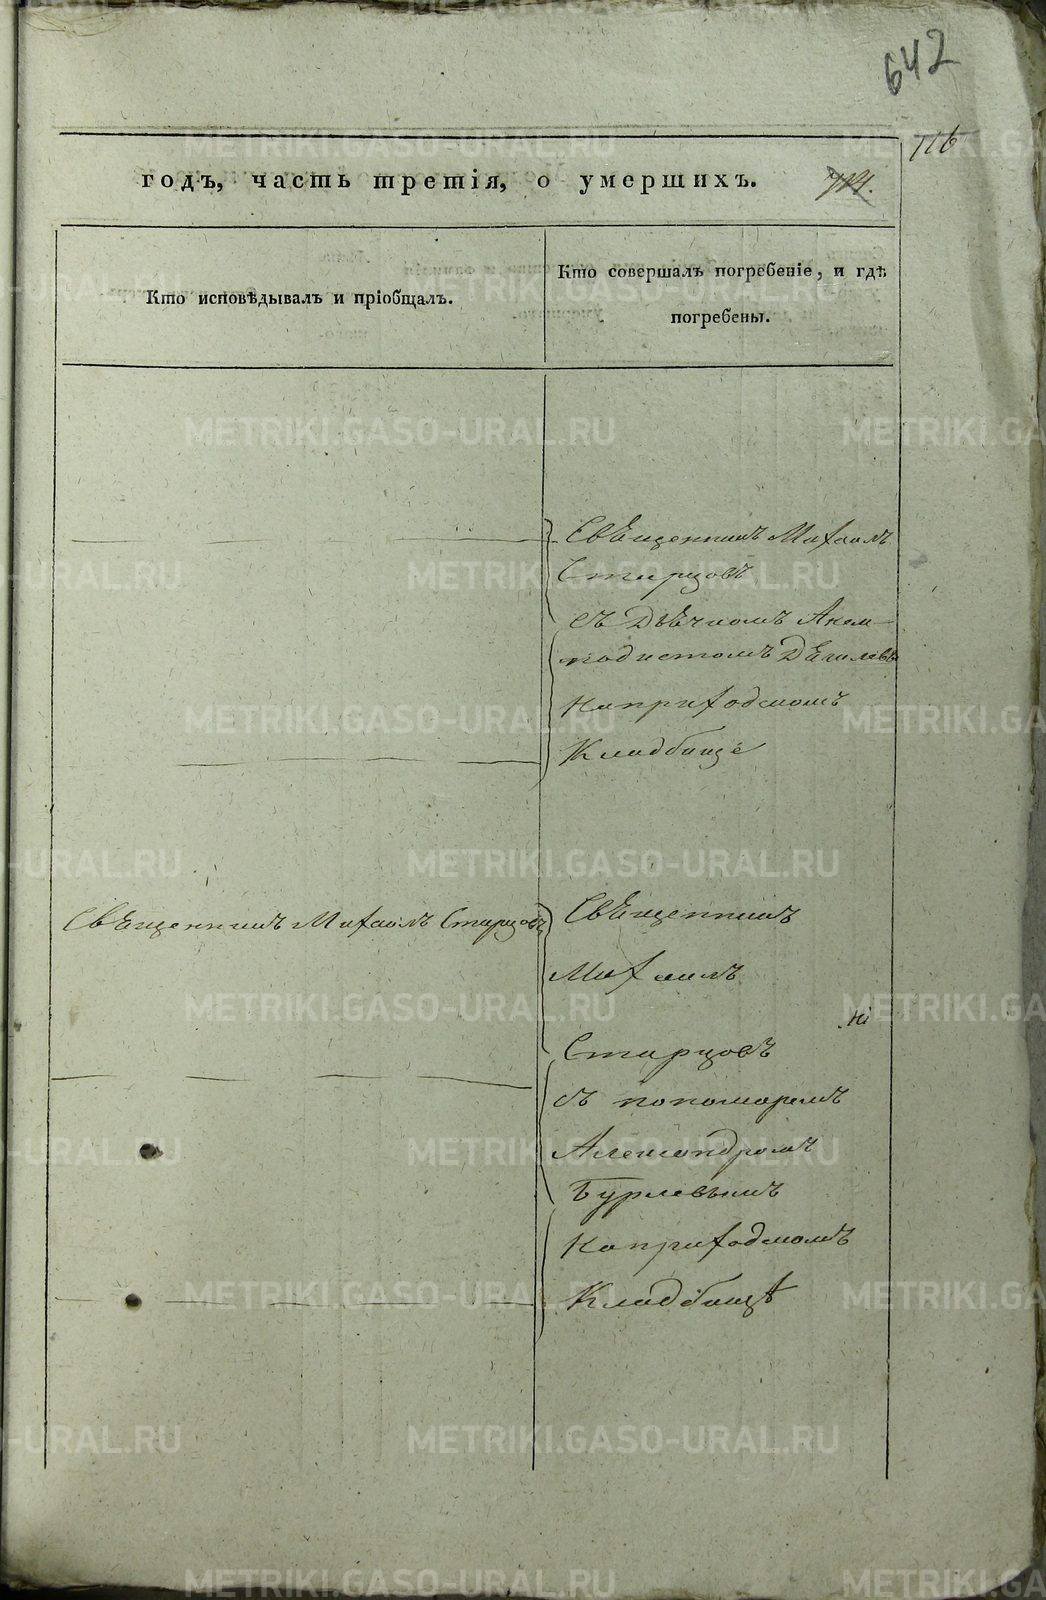 642
116
годъ, часть третія, о умершихъ.
Кто исповѣдывалъ и пріобщалъ.
Кто совершалъ погребеніе, и гдѣ
погребены.
Священникъ Михаилъ
Старцовъ
съ Дьячкомъ
Наприходскомъ
Кладбище
Священникъ Михаилъ Старцовъ
Священникъ
Михаилъ
Старцовъ
съ пономаремъ
Александромъ
Бурлевымъ
Наприходскомъ
Кладбищѣ
METRIKI.GASO-URAL.RU